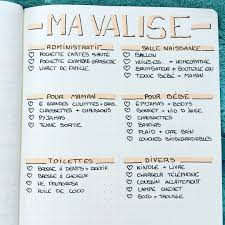 - MA VALISE -
ADMINISTRATIF
POCHETTE CARTES SANTÉ
POCHETTE EXAMENS GROSSESSE
LIVRET DE FAMILLE
SALLE NAISSANCE
BALLON
+ HOMÉOPATHIE
BRUMISATEUR + BOUTEILLE EAU
TENUE BÉBÉ + MAMAN
POUR MAMAN
6 GRANDES CULOTTES + DIMS
CHAUSSETTES + CHAUSSONS
PYJAMAS
TENUE SORTIE
POUR BÉBÉ
6 PYJAMAS + BODYS
BONNET + GILET LAINE
CHAUSSETTES
BAVOIRS
PLAID + CAPE BAIN
COUCHES BIODÉGRADABLES
TOILETTES
BROSSE À DENTS + DENTIF
BROSSE À CHEVEUX
HE
HUILE DE COCO
DIVERS
KINDLE + LIVRE
CHARGEUR TÉLÉPHONE
COUSSIN ALLAITEMENT
LAMPE CHEVET
BUJO + TROUSSE